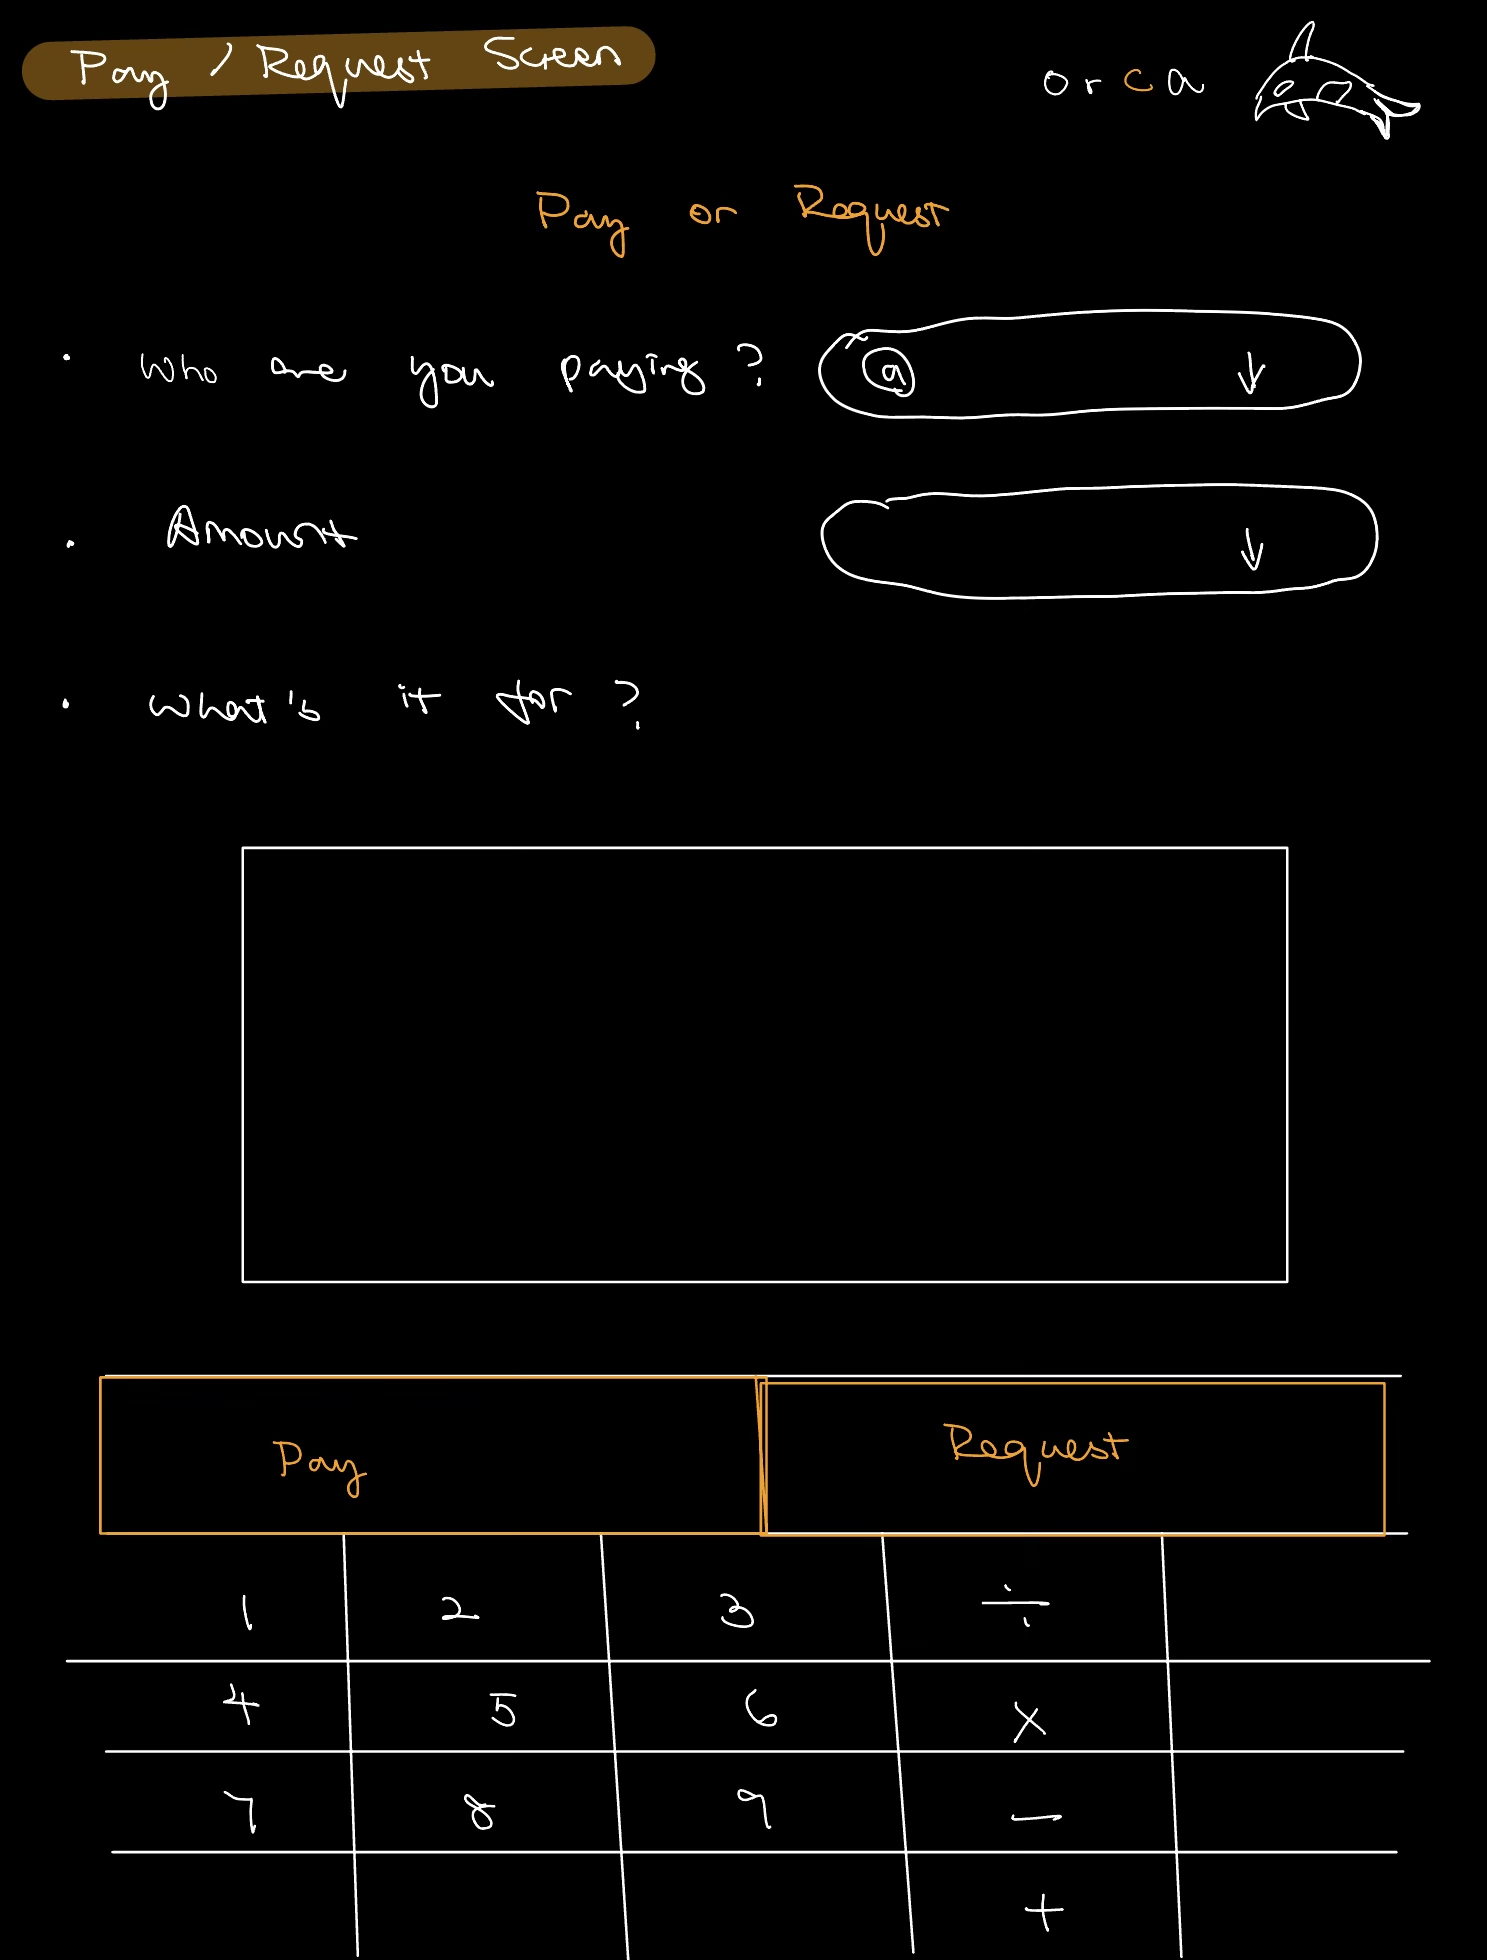 Pay / Request Screen
orca
Pay or Request
• Who are you paying? @ ↓
• Amount ↓
• What's it for?
Pay Request
1 2 3 ÷
4 5 6 ×
7 8 9 −
+